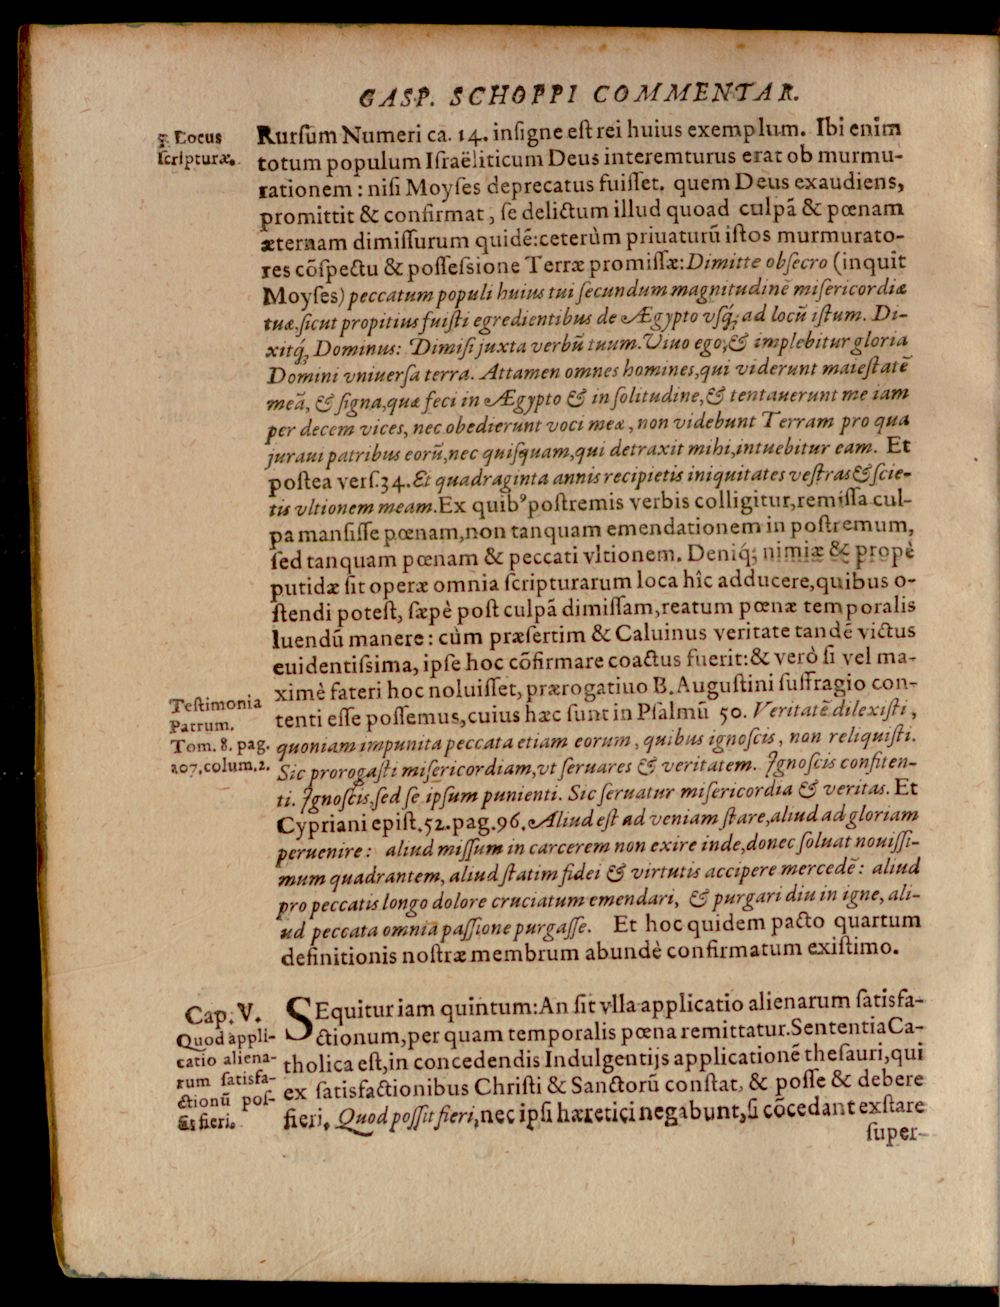 GASP. SCHOPPI COMMENTAR.
Locus
ſcripturæ.
Rurſum Numeri ca. 14. inſigne eſt rei huius exemplum. Ibi enim
totum populum Iſraëliticum Deus interemturus erat ob murmu-
rationem: niſi Moyſes deprecatus fuiſſet. quem Deus exaudiens,
promittit & confirmat, ſe delictum illud quoad culpã & pœnam
æternam dimiſſurum quidẽ: ceterùm priuaturũ iſtos murmurato-
res cõſpectu & poſſeſsione Terræ promiſſæ: Dimitte obſecro (inquit
Moyſes) peccatum populi huius tui ſecundum magnitudinẽ miſericordiæ
tuæ, ſicut propitius fuiſti egredientibus de Ægypto vſq́; ad locũ iſtum. Di-
xitq́; Dominus: Dimiſi juxta verbũ tuum. Viuo ego, & implebitur gloria
Domini vniuerſa terra. Attamen omnes homines, qui viderunt maieſtatẽ
meã, & ſigna, quæ feci in Ægypto & in ſolitudine, & tentauerunt me iam
per decem vices, nec obedierunt voci meæ, non videbunt Terram pro qua
juraui patribus eorũ, nec quiſquam, qui detraxit mihi, intuebitur eam. Et
poſtea verſ. 34. Et quadraginta annis recipietis iniquitates veſtras & ſcie-
tis vltionem meam. Ex quibꝰ poſtremis verbis colligitur, remiſſa cul-
pa manſiſſe pœnam, non tanquam emendationem in poſtremum,
ſed tanquam pœnam & peccati vltionem. Deniq́; nimiæ & propè
putidæ ſit operæ omnia ſcripturarum loca hîc adducere, quibus o-
ſtendi poteſt, ſæpè poſt culpã dimiſſam, reatum pœnæ temporalis
luendũ manere: cùm præſertim & Caluinus veritate tandẽ victus
euidentiſsima, ipſe hoc cõfirmare coactus fuerit: & verò ſi vel ma-
ximè fateri hoc noluiſſet, prærogatiuo B. Auguſtini ſuffragio con-
Teſtimonia
Patrum.
Tom. 8. pag.
207. colum. 2.
tenti eſſe poſſemus, cuius hæc ſunt in Pſalmũ 50. Veritatẽ dilexiſti,
quoniam impunita peccata etiam eorum, quibus ignoſcis, non reliquiſti.
Sic prorogaſti miſericordiam, vt ſeruares & veritatem. Ignoſcis confiten-
ti. Ignoſcis, ſed ſe ipſum punienti. Sic ſeruatur miſericordia & veritas. Et
Cypriani epiſt. 52. pag. 96. Aliud eſt ad veniam ſtare, aliud ad gloriam
peruenire: aliud miſſum in carcerem non exire inde, donec ſoluat nouiſſi-
mum quadrantem, aliud ſtatim fidei & virtutis accipere mercedẽ: aliud
pro peccatis longo dolore cruciatum emendari, & purgari diu in igne, ali-
ud peccata omnia paſſione purgaſſe. Et hoc quidem pacto quartum
definitionis noſtræ membrum abundè confirmatum exiſtimo.
Cap. V.
Quod appli-
catio aliena-
rum ſatisfa-
ctionũ poſ-
ſit fieri.
SEquitur iam quintum: An ſit vlla applicatio alienarum ſatisfa-
ctionum, per quam temporalis pœna remittatur. Sententia Ca-
tholica eſt, in concedendis Indulgentijs applicationẽ theſauri, qui
ex ſatisfactionibus Chriſti & Sanctorũ conſtat, & poſſe & debere
fieri. Quod poſſit fieri, nec ipſi hæretici negabunt, ſi cõcedant exſtare
ſuper-